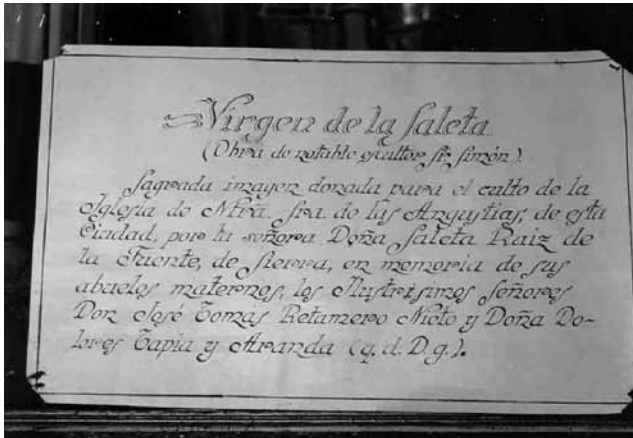 Virgen de la Saleta
(Obra de notable escultor Sr. Simón)
Sagrada imagen donada para el culto de la
Iglesia de Ntrā. Sra. de las Angustias, de esta
Ciudad, por la señora Doña Saleta Ruiz de
la Fuente, de Sierra, en memoria de sus
abuelos maternos, los Ilustrísimos Señores
Don José Tomás Retamero Nieto y Doña Do-
lores Tapia y Aranda (q. d. D. g.).